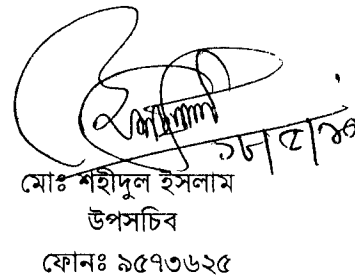 মোঃ শহীদুল ইসলাম
উপসচিব
ফোনঃ ৯৫৭৩৬২৫